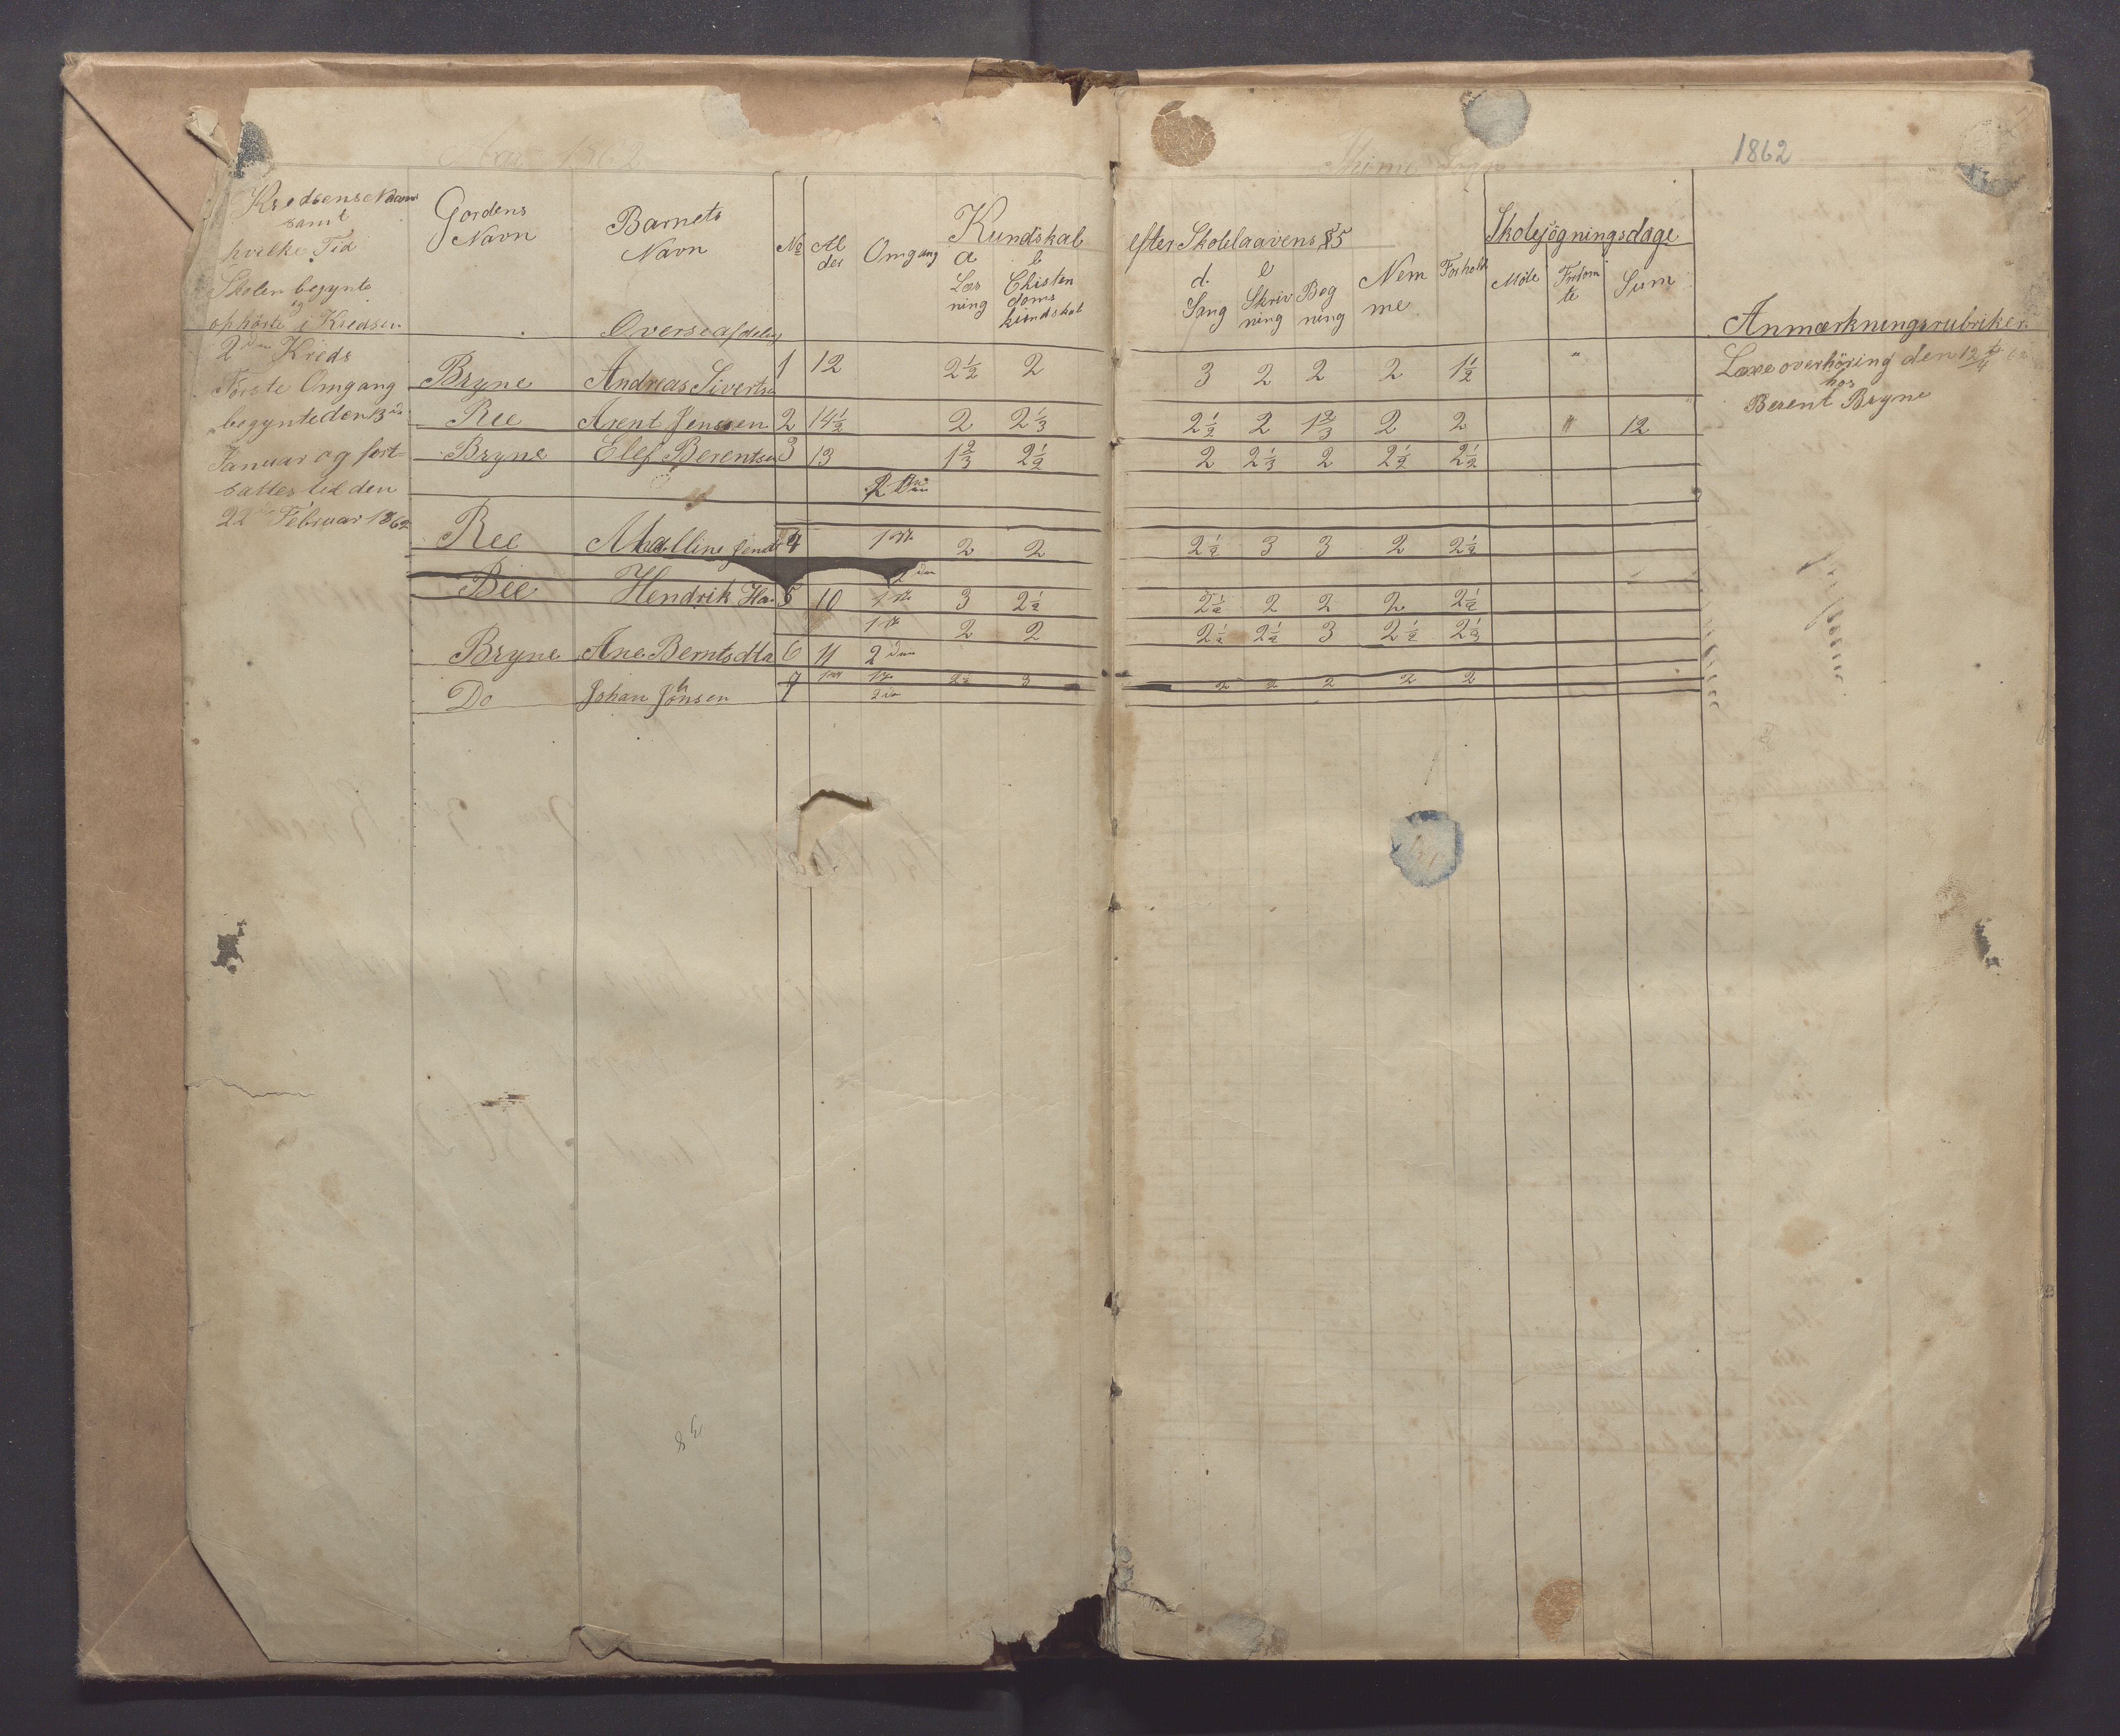 1862
1862
Kredsens Navn
samt
hvilke Tid
Skolen begynte
og
ophørte i Kredsen
Gordens
Navn
Barnets
Navn
№
Al
der
Omgang
Kundskab
a
Læs
ning
b
Chisten
doms
kundskab
efter Skolelaavens §5
d.
Sang
e
Skriv
ning
Reg
ning
Nem
me
Forhold
Skolesøgningsdage
Møte
Forsøm
te
Sum
Anmærkningsrubriker
Øverste afdeling
2den Kreds
Første Omgang
begynte den 3die
Januar og fort
sattes til den
22de Februar 1862
Bryne Andreas Sivertsen 1 12 2½ 2 3 2 2 2 1½ "
Ree Arent Jenssen 2 14½ 2 2⅓ 2½ 2 1⅔ 2 2 " 12
Bryne Elef Berentsen 3 13 1⅔ 2½ 2 2⅓ 2 2½ 2½
2den
Ree Malline 4 1ste 2 2 2½ 3 3 2 2½
2den
Ree Hendrik 5 10 1ste 3 2½ 2½ 2 2 2 2½
1ste 2 2 2½ 2½ 3 2½ 2½
Bryne Ane Berntsdta 6 11 2den
1ste 2½ 3 2 2 2 2 2
Do Johan Jonsen 7 2den
Læxeoverhøring den 12
hos
Berent Bryne